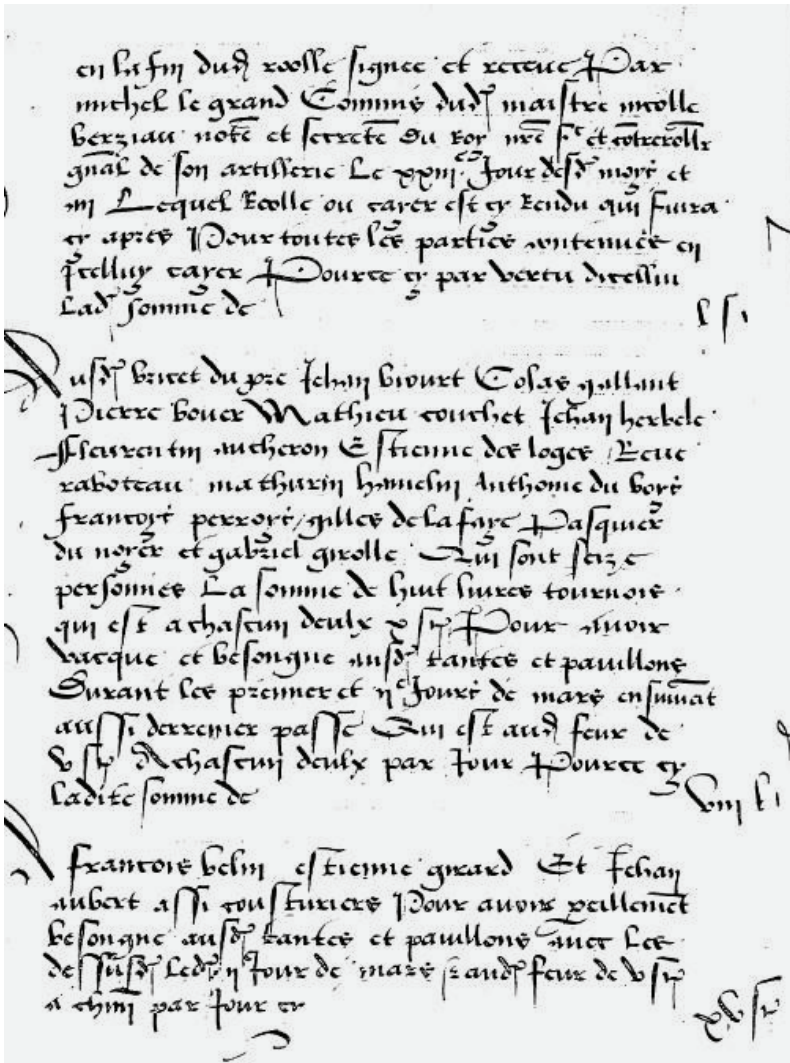 en la fin dud roolle signee et receue Par
michel le grand Commis dud maistre nicolle
berziau note et secrete du Roy nre sr et cotrerollr
gnal de son artillerie Le xxiiie Jour desd moys et
an Lequel Roolle ou cayer est cy Rendu qui suira
cy apres Pour toutes les parties contenues en
Icelluy cayer Pource cy par vertu dicelluy
Lad somme de
l s t
Ausd bricet du pre Jehan biourt Colas gallant
Pierre bouer Mathieu couchet Jehan herbele
Fleurentin aucheron Estienne des loges Rene
raboteau mathurin hamelin Anthoine du boys
francoys perroys gilles de la faye Pasquier
du noyer et gabriel girolle Qui sont seize
personnes La somme de huit livres tournois
qui est a chascun deulx x s t Pour avoir
vacque et besongne ausd tantes et pavillons
Durant les premier et iie Jours de mars ensuivat
aussi derrenier passe Qui est aud feur de
v s t A chascun deulx par Jour Pource cy
ladite somme de
viii l t
A francois belin estienne girard Et Jehan
aubert assi cousturiers Pour avoir peillement
besongne ausd tantes et pavillons avec Les
dessusd Led ii Jour de mars aud feur de v s t
a chun par Jour cy
xv s t